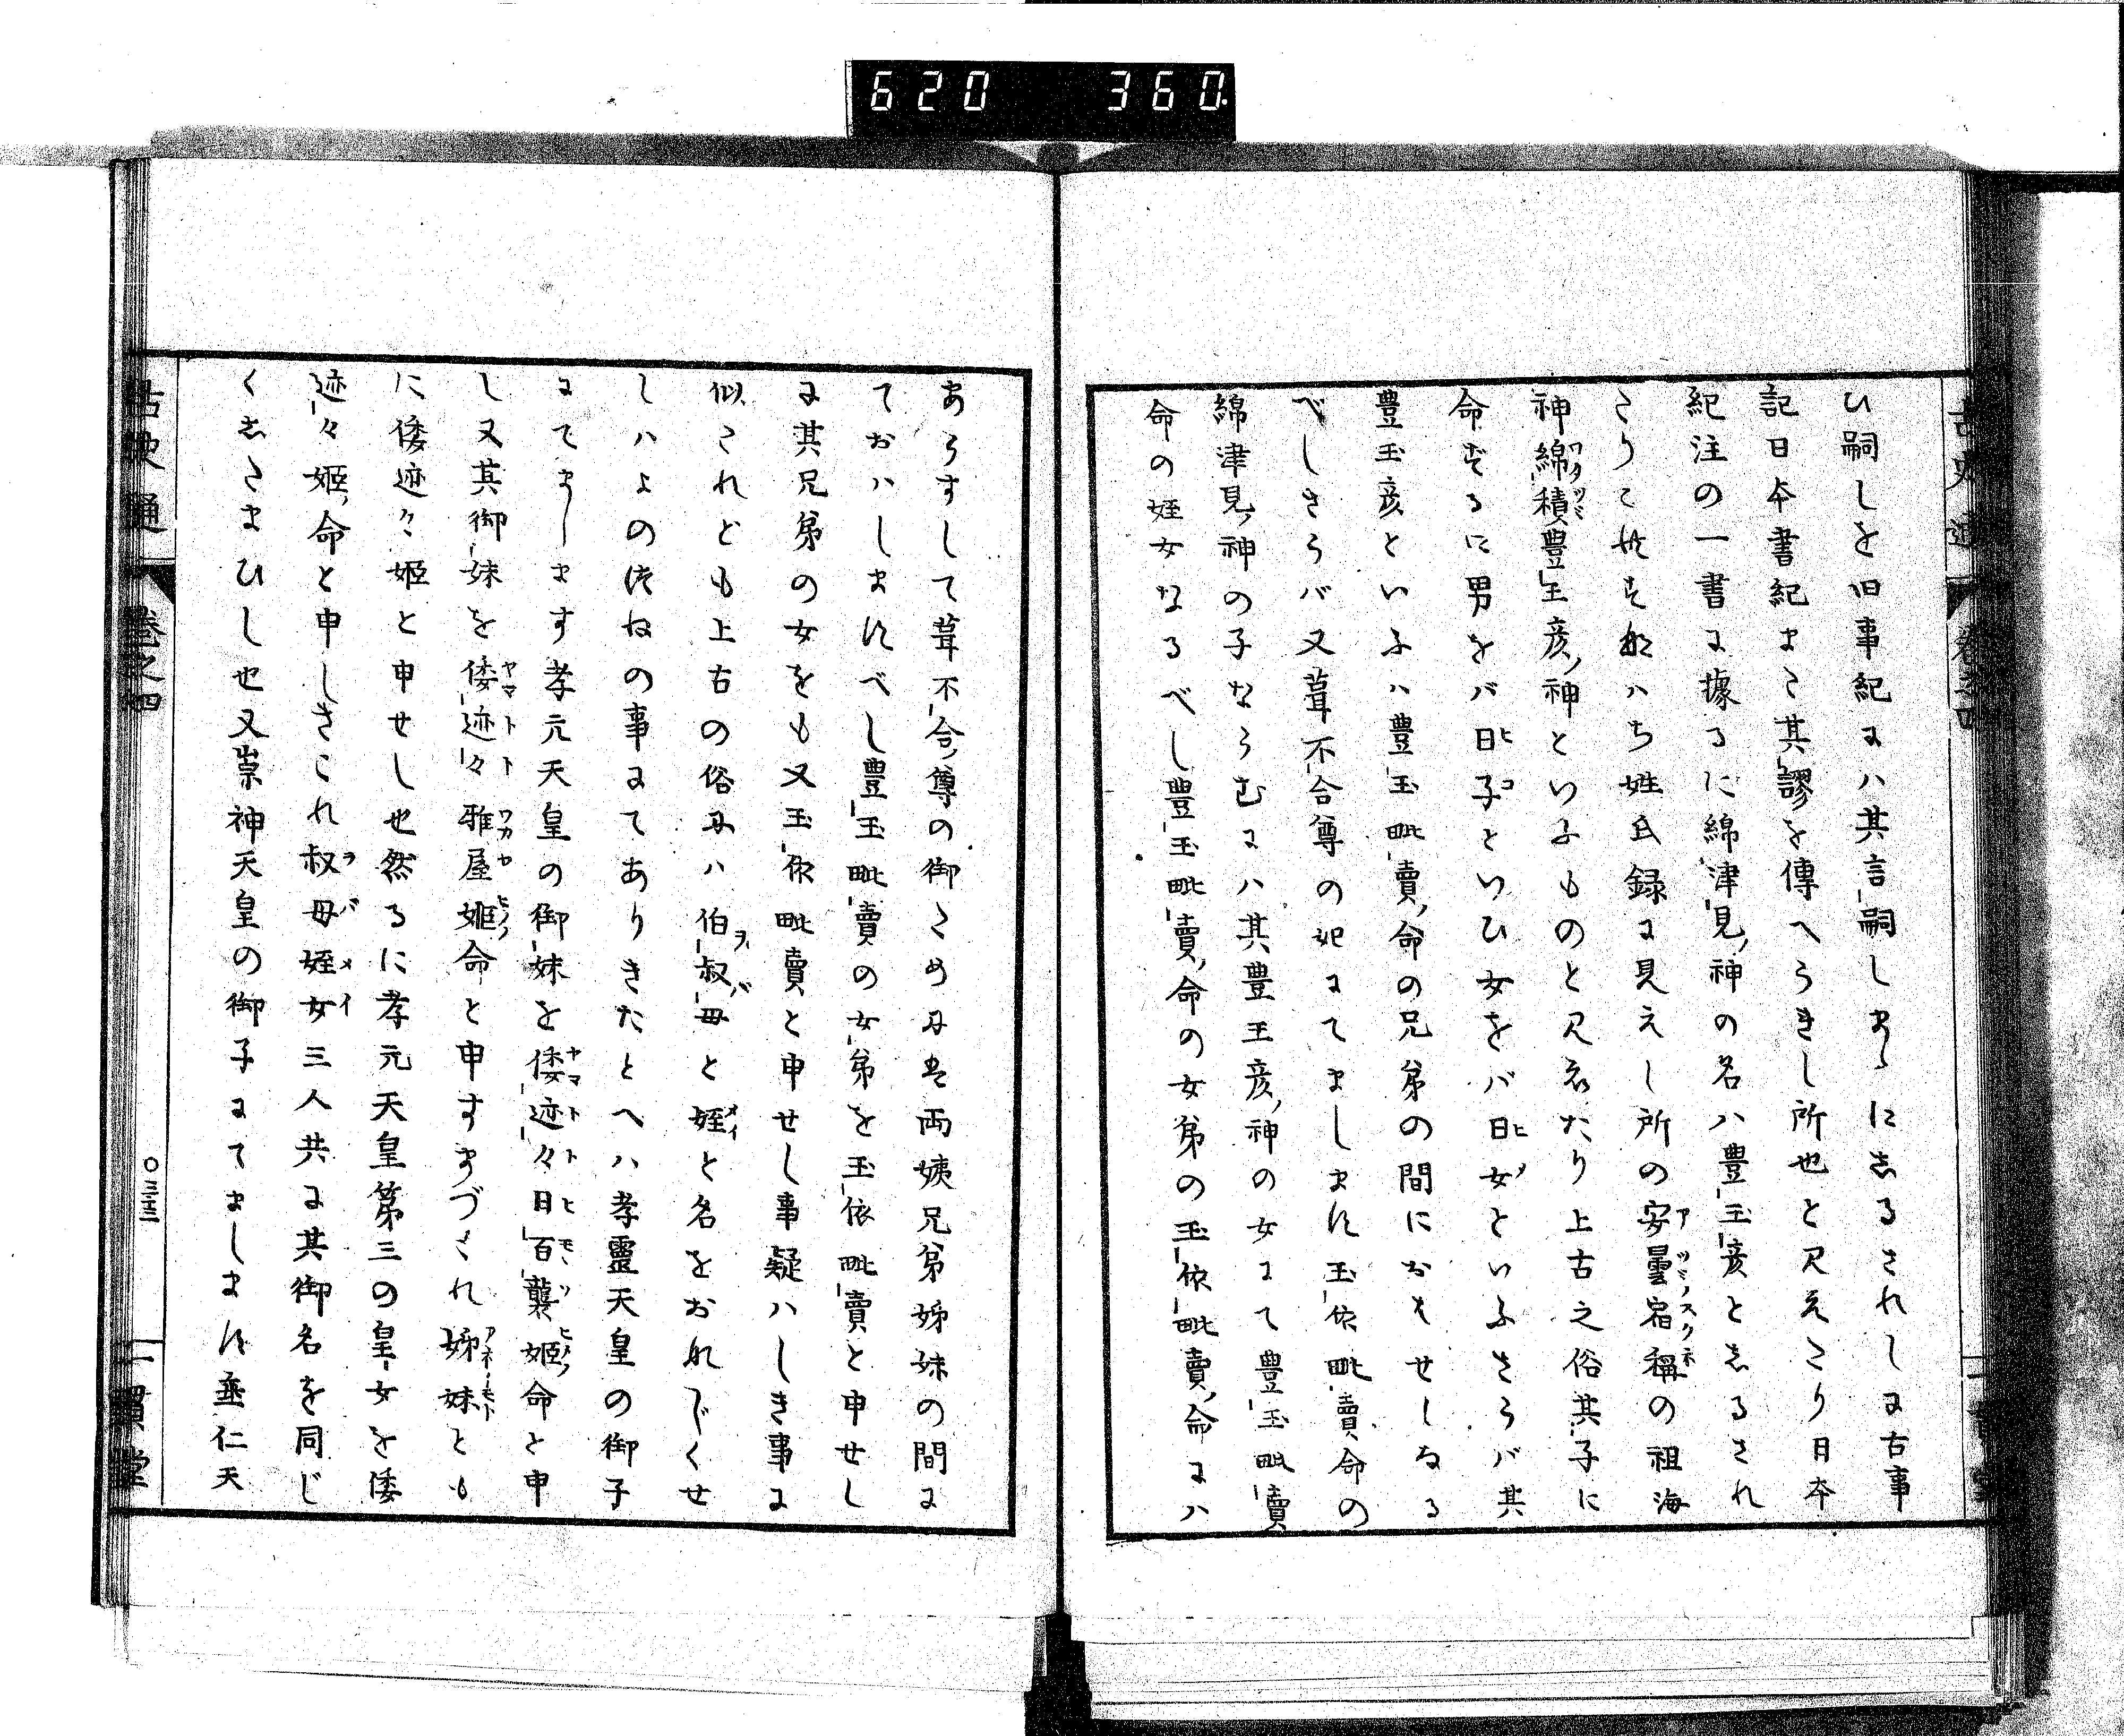 620 360.
古史通 卷之四
ひ嗣しを旧事紀にハ其言嗣しまゝにしるされしに古事
記日本書紀また其謬を傳へうきし所也と見えたり日本
紀注の一書に據るに綿津見神の名ハ豊玉彦としるされ
たりこれすなハち姓氏録に見えし所の安曇宿稱の祖海
神綿積豊玉彦神といふものと見えたり上古之俗其子に
命するに男をバ日子といひ女をバ日女といふさらバ其
豊玉彦といふハ豊玉毗賣命の兄弟の間におはせしなる
べしさらバ又葺不合尊の妃にてまします玉依毗賣命の
綿津見神の子ならむにハ其豊玉彦神の女にて豊玉毗賣
命の姪女なるべし豊玉毗賣命の女弟の玉依毗賣命にハ
あらすして葺不合尊の御ためには両姨兄弟姊妹の間に
ておハしますべし豊玉毗賣の女弟を玉依毗賣と申せし
に其兄弟の女をも又玉依毗賣と申せし事疑ハしき事に
似たれども上古の俗にハ伯叔母と姪と名をおなじくせ
しハよのつねの事にてありきたとへハ孝靈天皇の御子
にてまします孝元天皇の御妹を倭迹々日百襲姫命と申
し又其御妹を倭迹々雅屋姫命と申すまづこれ姊妹とも
に倭迹々姫と申せし也然るに孝元天皇第三の皇女を倭
迹々姫命と申しきこれ叔母姪女三人共に其御名を同じ
くしたまひし也又崇神天皇の御子にてまします垂仁天
古史通 卷之四 〇三三 一貫堂